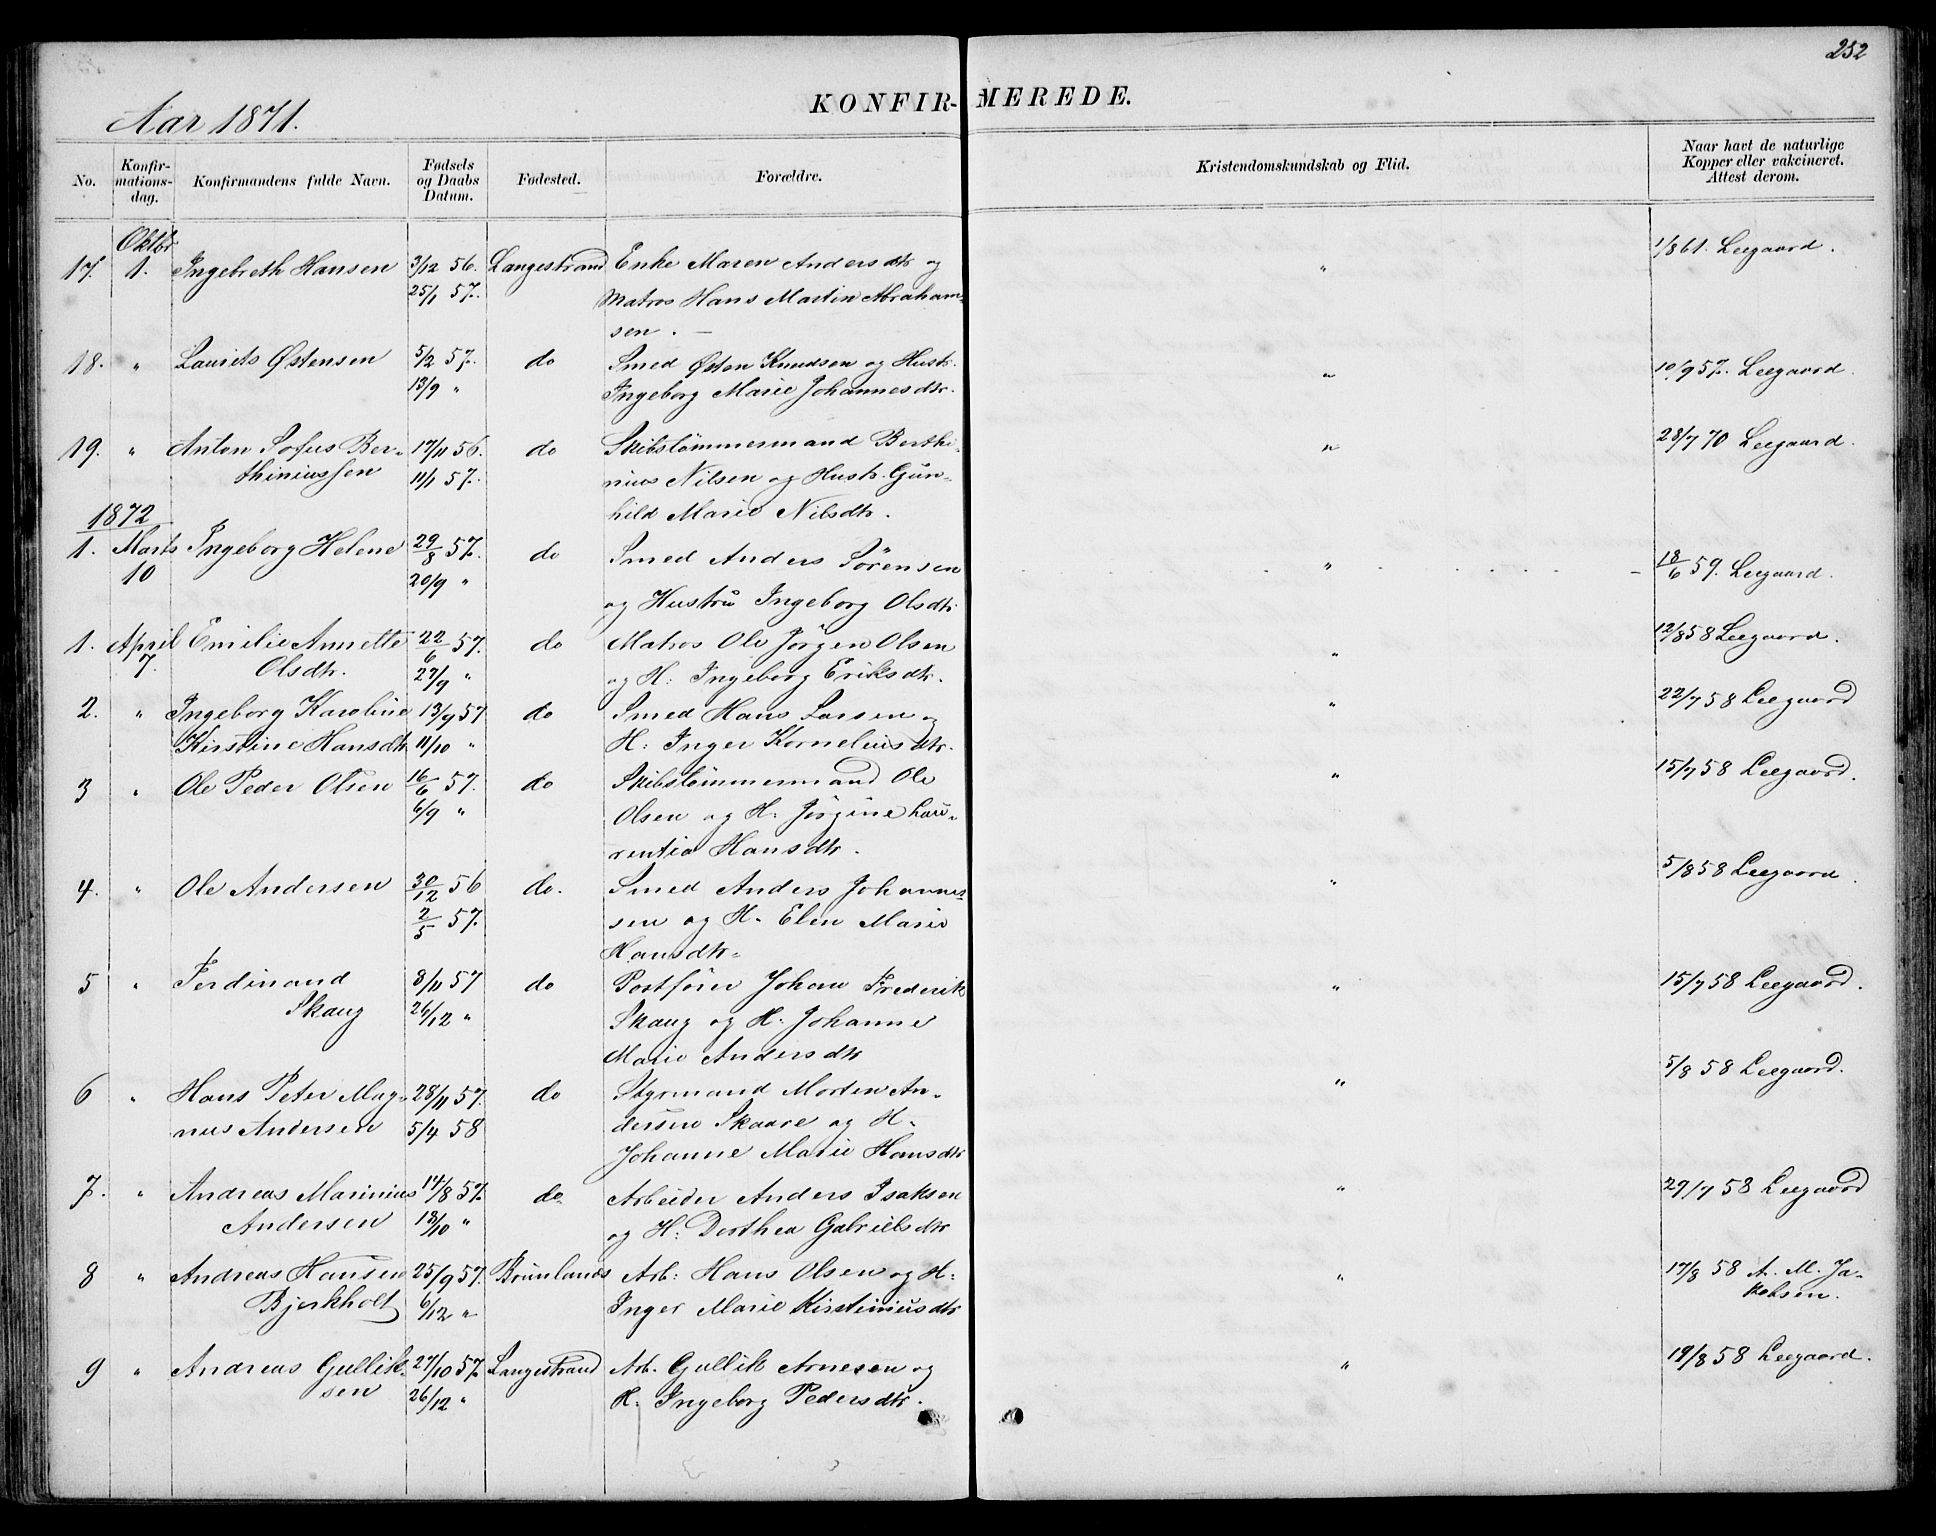 252
KONFIRMEREDE.
Aar 1871.
No. Konfirmations-dag. Konfirmandens fulde Navn. Fødsels og Daabs Datum. Fødested. Forældre. Kristendomskundskab og Flid. Naar havt de naturlige Kopper eller vakcineret. Attest derom.
Oktbr
17. 1. Ingebreth Hansen 3/12 56. Langestrand Enke Maren Andersdtr og " 1/8 61. Leegaard.
25/1 57. Matros Hans Martin Abraham-
sen. —
18. " Laurits Østensen 5/2 57. do Smed Østen Knudsen og Hustr. " 10/9 57. Leegaard.
13/9 " Ingeborg Marie Johannesdtr.
19. " Anton Sofus Ber- 17/11 56. do Skibstömmermand Berthi- " 28/7 70 Leegaard.
thiniussen 11/1 57. nius Nilsen og Hustr. Gun-
hild Marie Nilsdtr.
1872
1. Marts Ingeborg Helene 29/8 57. do Smed Anders Sörensen " 18/6 59. Leegaard.
10 20/9 " og Hustru Ingeborg Olsdtr
1. April Emilie Annette 22/6 57. do Matros Ole Jörgen Olsen " 12/8 58 Leegaard.
7. Olsdtr. 27/9 " og H. Ingeborg Eriksdtr.
2. " Ingeborg Karoline 13/9 57 do Smed Hans Larsen og " 22/7 58 Leegaard
Kirstine Hansdtr 11/10 " H. Inger Korneliusdtr.
3 " Ole Peder Olsen 16/6 57. do Skibstömmermand Ole " 15/7 58 Leegaard.
6/9 " Olsen og H. Jörgine Lau-
rentia Hansdtr.
4. " Ole Andersen 30/12 56 do. Smed Anders Johannes- " 5/8 58 Leegaard.
2/5 57. sen og H. Elen Marie
Hansdtr.
5 " Ferdinand 8/11 57 do Postförer Johan Frederik " 15/7 58 Leegaard.
Skaug 26/12 " Skaug og H. Johanne
Marie Andersdtr
6 " Hans Peter Mag- 28/11 57. do Styrmand Morten An- " 5/8 58 Leegaard.
nus Andersen 5/4 58 dersen Skaare og H.
Johanne Marie Hansdtr
7. " Andreas Marinius 14/8 57. do Arbeider Anders Isaksen " 29/7 58 Leegaard
Andersen 18/10 " og H. Dorthea Gabrielsdtr
8 " Andreas Hansen 25/9 57. Brunlanes Arb. Hans Olsen og H. " 17/8 58 A. M. Ja-
Bjerkholt 6/12 " Inger Marie Kirstiniusdtr kobsen.
9 " Andreas Gullik- 27/10 57. Langestrand Arb. Gullik Arnesen og " 19/8 58 Leegaard.
sen 26/12 " H. Ingeborg Pedersdtr.